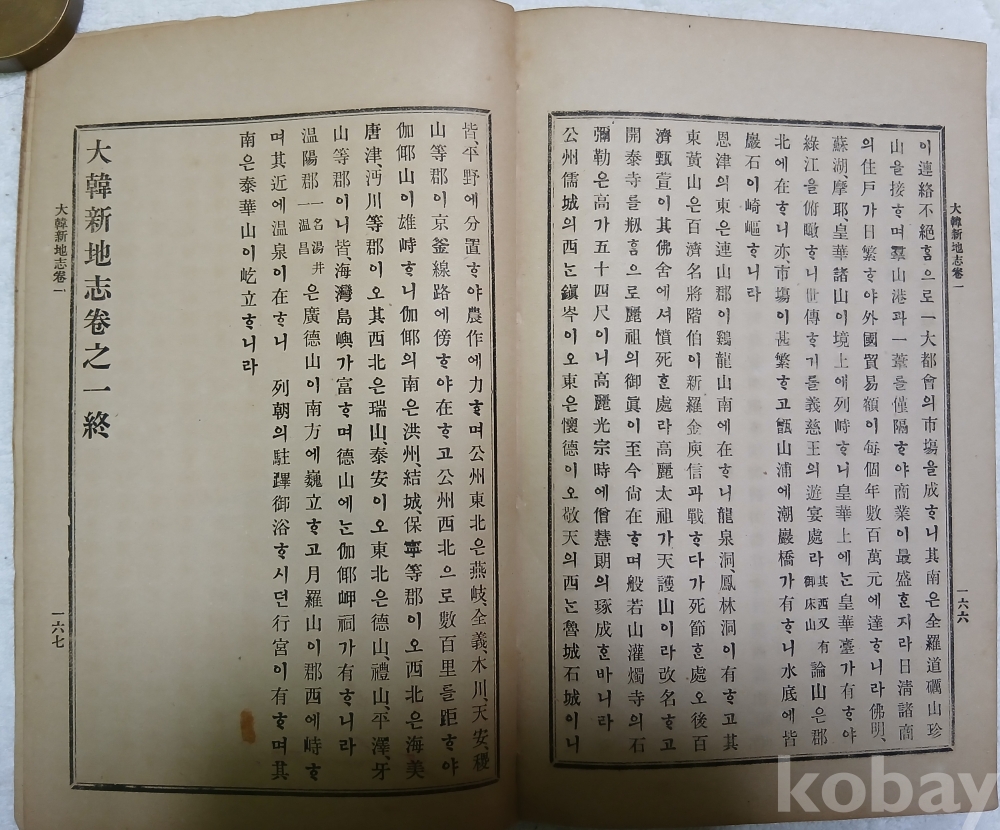 大韓新地志卷一
一六六
이連絡不絕홈으로一大都會의市塲을成ᄒᆞ니其南은全羅道礪山珍
山을接ᄒᆞ며羣山港과一葦를僅隔ᄒᆞ야商業이最盛ᄒᆞᆫ지라日淸諸商
의住戶가日繁ᄒᆞ야外國貿易額이每個年數百萬元에達ᄒᆞ니라佛明、
蘇湖、摩耶、皇華諸山이境上에列峙ᄒᆞ니皇華上에ᄂᆞᆫ皇華臺가有ᄒᆞ야
綠江을俯瞰ᄒᆞ니世傳ᄒᆞ기를義慈王의遊宴處라其西又有御床山論山은郡
北에在ᄒᆞ니亦、市塲이甚繁ᄒᆞ고甑山浦에潮巖橋가有ᄒᆞ니水底에皆
巖石이崎嶇ᄒᆞ니라
恩津의東은連山郡이鷄龍山南에在ᄒᆞ니龍泉洞、鳳林洞이有ᄒᆞ고其
東黃山은百濟名將階伯이新羅金庾信과戰ᄒᆞ다가死節ᄒᆞᆫ處오後百
濟甄萱이其佛舍에셔憤死ᄒᆞᆫ處라高麗太祖가天護山이라改名ᄒᆞ고
開泰寺를刱홈으로麗祖의御眞이至今尙在ᄒᆞ며般若山灌燭寺의石
彌勒은高가五十四尺이니高麗光宗時에僧慧朗의琢成ᄒᆞᆫ바니라
公州儒城의西ᄂᆞᆫ鎭岑이오東은懷德이오敬天의西ᄂᆞᆫ魯城石城이니
皆、平野에分置ᄒᆞ야農作에力ᄒᆞ며公州東北은燕岐、全義、木川、天安、稷
山等郡이京釜線路에傍ᄒᆞ야在ᄒᆞ고公州西北으로數百里를距ᄒᆞ야
伽倻山이雄峙ᄒᆞ니伽倻의南은洪州、結城、保寧等郡이오西北은海美
唐津、沔川等郡이오其西北은瑞山、泰安이오東北은德山、禮山、平澤、牙
山等郡이니皆、海灣島嶼가富ᄒᆞ며德山에ᄂᆞᆫ伽倻岬祠가有ᄒᆞ니라
溫陽郡一名湯井一溫昌은廣德山이南方에巍立ᄒᆞ고月羅山이郡西에峙ᄒᆞ
며其、近에溫泉이在ᄒᆞ니 列朝의駐蹕御浴ᄒᆞ시던行宮이有ᄒᆞ며其
南은泰華山이屹立ᄒᆞ니라
大韓新地志卷之一終
大韓新地志卷一
一六七
kobay